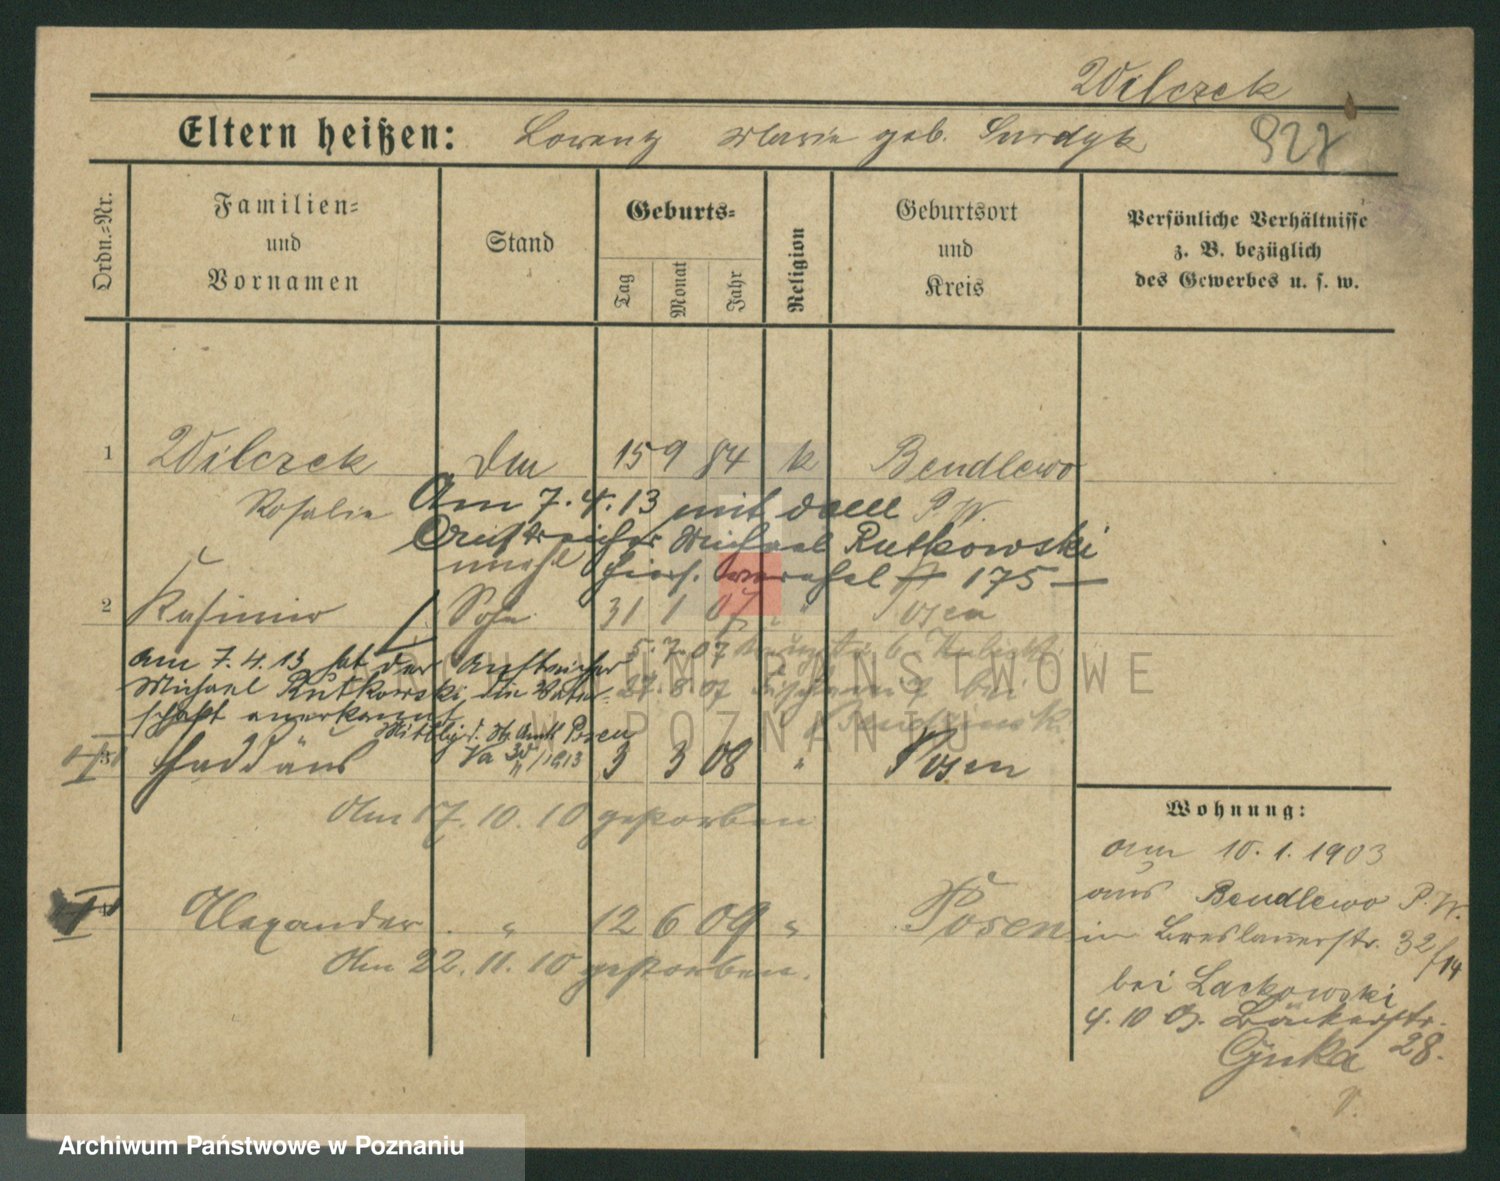 Wilczek
Eltern heißen: Lorenz Marie geb. Surdyk
927
Ordn.-Nr.
Familien-
und
Vornamen
Stand
Geburts-
Tag
Monat
Jahr
Religion
Geburtsort
und
Kreis
Persönliche Verhältnisse
z. B. bezüglich
des Gewerbes u. s. w.
1 Wilczek 15 9 84 k Bendlewo
Rosalie P. W.
Am 7. 4. 13 mit dem
Anstreicher Michael Rutkowski
hiers. 175
2 Kasimir Sohn 31 1 07 " Posen
5. 7. 07
27. 8. 07 bei
Am 7. 4. 13 hat der Anstreicher
Michael Rutkowski die Vater-
schaft anerkannt
Mittlg. d. St. Amt Posen
3 Thaddäus 3 3 08 " Posen
Am 17. 10. 10 gestorben
4 Alexander " 12 6 09 " Posen
Am 22. 11. 10 gestorben.
Wohnung:
am 10. 1. 1903
aus Bendlewo P. W.
in Breslauerstr. 32/14
bei Lackowski
4. 10 03. Bäckerstr.
28.
ARCHIWUM PAŃSTWOWE
W POZNANIU
Archiwum Państwowe w Poznaniu